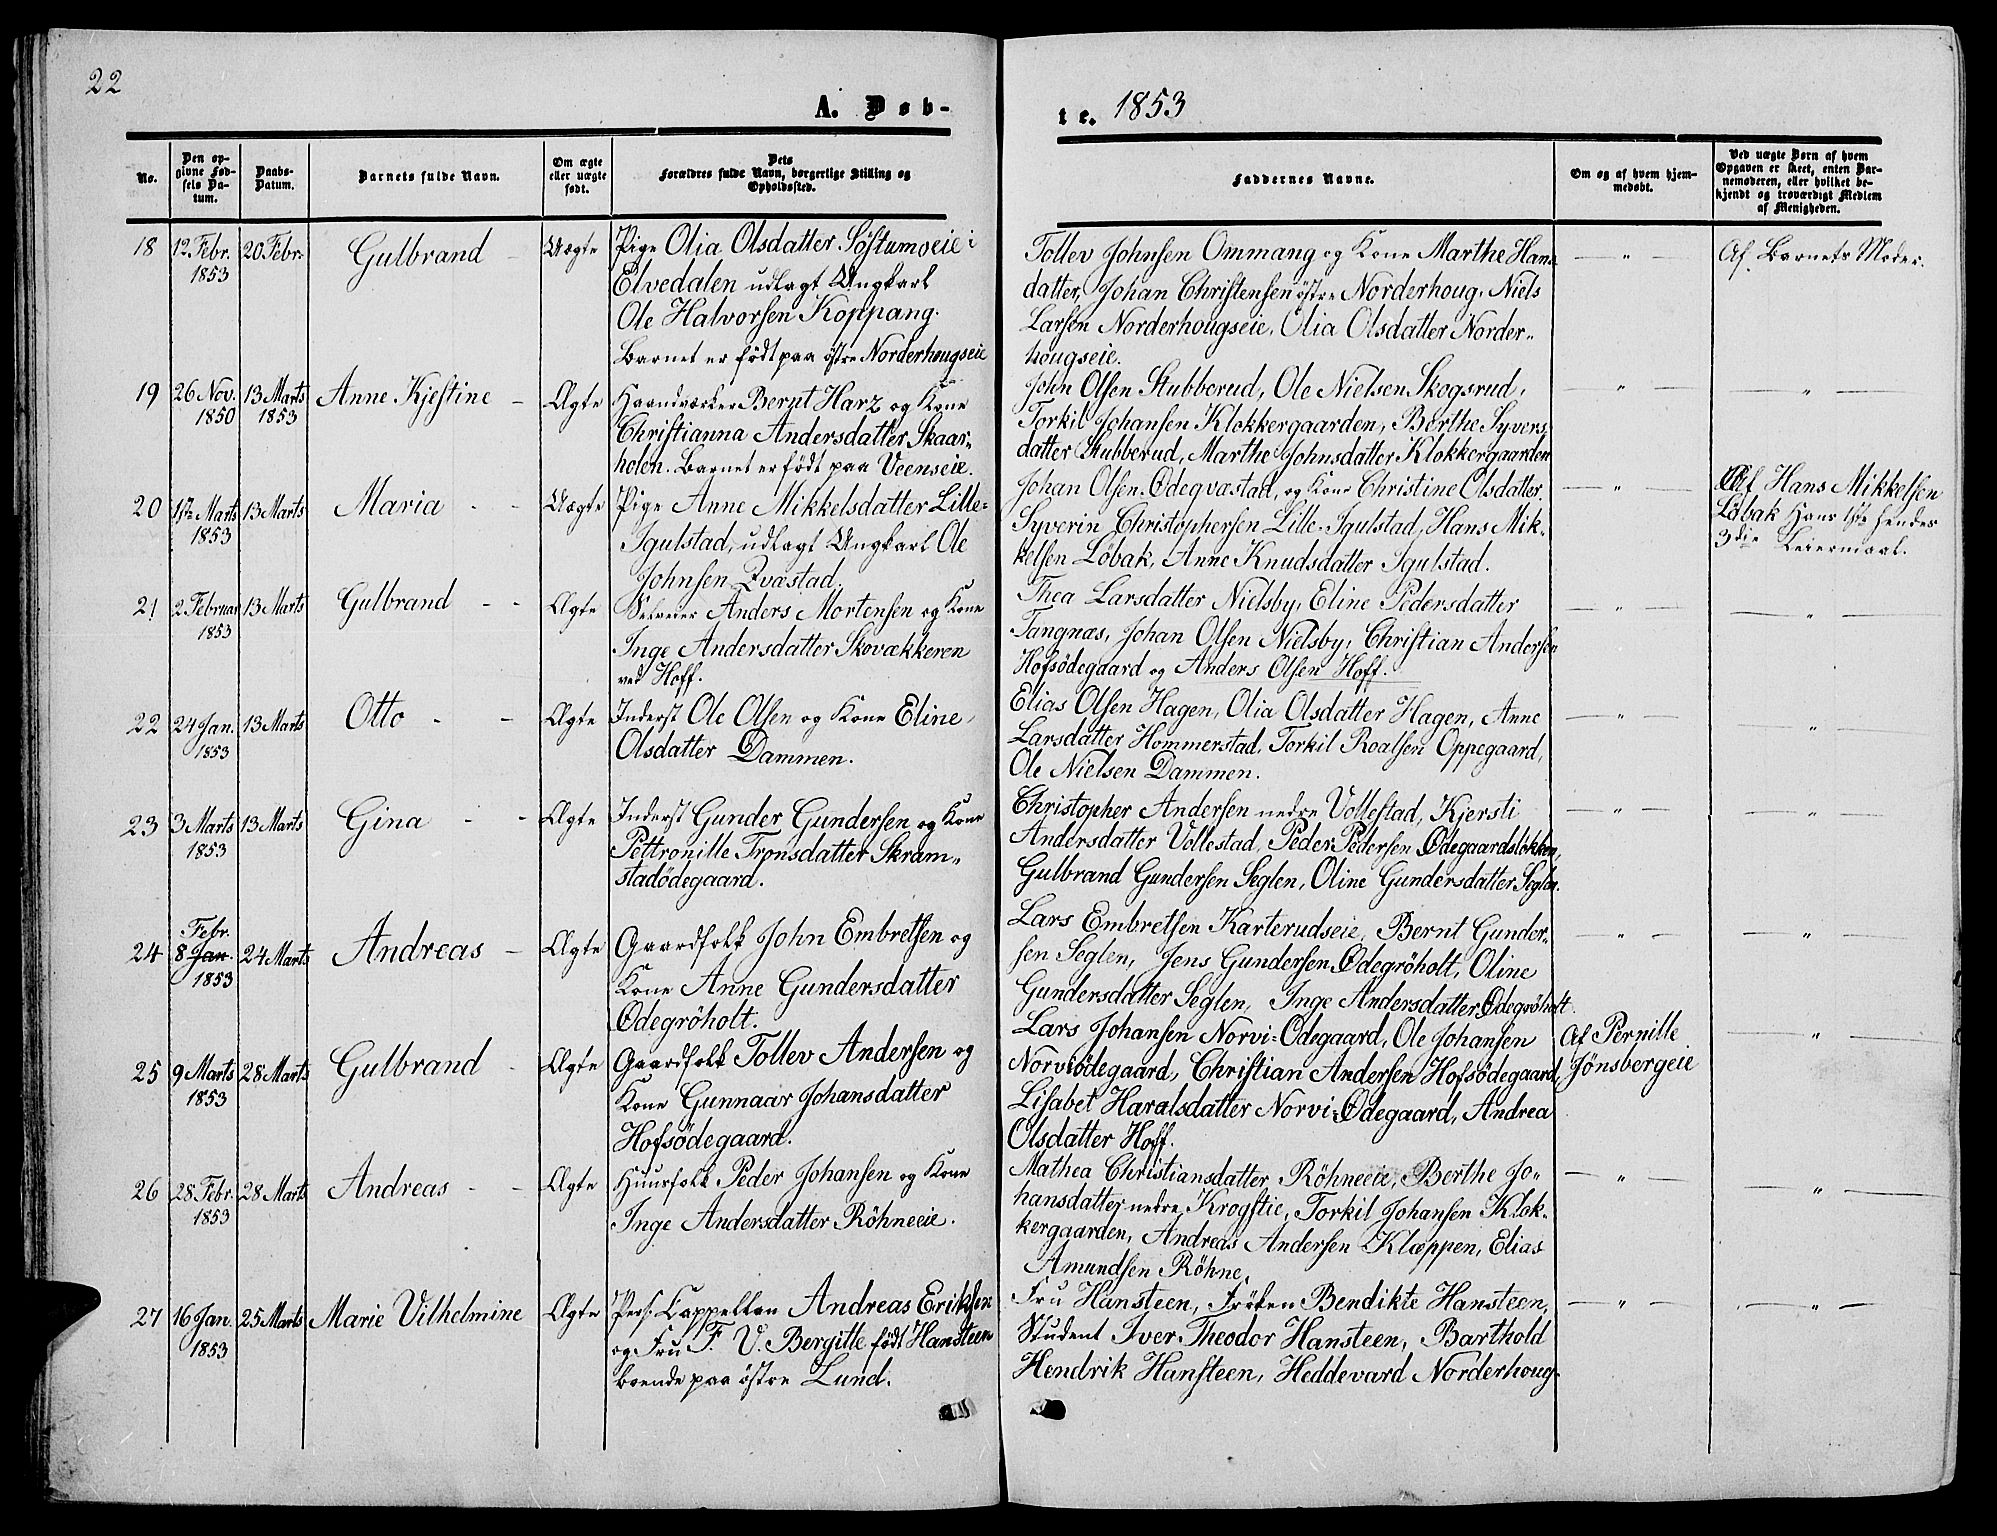 22
A. Døb-
te. 1853
No.
Den op-
givne Fød-
sels Da-
tum.
Daabs-
Datum.
Barnets fulde Navn.
Om ægte
eller uægte
født.
Dets
Forældres fulde Navn, borgerlige Stilling og
Opholdssted.
Faddernes Navne.
Om og af hvem hjem-
medøbt.
Ved uægte Børn af hvem
Opgaven er skeet, enten Bar-
nemoderen, eller hvilket be-
kjendt og troværdigt Medlem
af Menigheden.
18 12 Febr. 1853 20 Febr. Gulbrand - Uægte
Pige Olia Olsdatter Söstumoeie i
Elvedalen udlagt Ungkarl
Ole Halvorsen Koppang.
Barnet er født paa østre Norderhougseie
Tollev Johnsen Ommang og Kone Marthe Hans-
datter, Johan Christensen østre Norderhoug, Niels
Larsen Norderhougseie, Olia Olsdatter Norder-
hougseie.
— " —
Af Barnets Moder.
19 26 Nov. 1850 13 Marts 1853 Anne Kjestine - Ægte
Haandværker Bernt Harz og Kone
Christianna Andersdatter Skaar-
holen. Barnet er født paa Veenseie.
John Olsen Stubberud, Ole Nielsen Skogsrud,
Torkil Johansen Klokkergaarden, Berthe Syvers-
datter Stubberud, Marthe Johnsdatter Klokkergaarden
— " — — " —
20 1ste Marts 1853 13 Marts Maria - - Uægte
Pige Anne Mikkelsdatter Lille-
Igulstad, udlagt Ungkarl Ole
Johnsen Qvastad.
Johan Olsen Ødeqvastad, og Kone Christine Olsdatter,
Syverin Christophersen Lille-Igulstad, Hans Mik-
kelsen Löbak, Anne Knudsdatter Igulstad.
— " —
Af Hans Mikkelsen
Löbak Hans 1ste hendes
3die Leiermaal.
21 2 Februar 1853 13 Marts Gulbrand - - Ægte
Selveier Anders Mortensen og Kone
Inge Andersdatter Skovækkeren
ved Hoff.
Thea Larsdatter Nielsby, Eline Pedersdatter
Tangnæs, Johan Olsen Nielsby, Christian Andersen
Hofsödegaard og Anders Olsen Hoff.
— " — — " —
22 24 Jan. 1853 13 Marts Otto - - Ægte
Inderst Ole Olsen og Kone Eline
Olsdatter Dammen.
Elias Olsen Hagen, Olia Olsdatter Hagen, Anne
Larsdatter Hommerstad, Torkil Roalsen Oppegaard,
Ole Nielsen Dammen.
— " — — " —
23 3 Marts 1853 13 Marts Gina - - Ægte
Inderst Gunder Gundersen og Kone
Pettronille Tronsdatter Skram-
stadödegaard.
Christopher Andersen nedre Vollestad, Kjersti
Andersdatter Vollestad, Peder Pedersen Ødegaardslökken,
Gulbrand Gundersen Seglen, Oline Gundersdatter Seglen.
— " — — " —
24 Febr. 8 Jan. 1853 24 Marts Andreas - Ægte
Gaardfolk John Embretsen og
Kone Anne Gundersdatter
Ødegröholt.
Lars Embretsen Karterudseie, Bernt Gunder-
sen Seglen, Jens Gundersen Ødegröholt, Oline
Gundersdatter Seglen, Inge Andersdatter Ødegröholt.
— " — — " —
25 9 Marts 1853 28 Marts Gulbrand - Ægte
Gaardfolk Tollev Andersen og
Kone Gunnaar Johansdatter
Hofsödegaard.
Lars Johansen Norvi-Ødegaard, Ole Johansen
Norviödegaard, Christian Andersen Hofsödegaard,
Lisabet Haralsdatter Norvi-Ødegaard, Andrea
Olsdatter Hoff.
Af Pernille
Jönsbergeie
— " —
26 28 Febr. 1853 28 Marts Andreas - - Ægte
Huusfolk Peder Johansen og Kone
Inge Andersdatter Röhneeie.
Mathea Christiansdatter Röhneeie, Berthe Jo-
hansdatter nedre Krogstie, Torkil Johansen Klok-
kergaarden, Andreas Andersen Klæppen, Elias
Amundsen Röhne.
— " — — " —
27 16 Jan. 1853 25 Marts Marie Vilhelmine Ægte
Pers. Cappellan Andreas Eriksen
og Fru F. V. Bergitte født Hansteen
boende paa østre Lund.
Fru Hansteen, Frøken Bendikte Hansteen,
Student Iver Theodor Hansteen, Barthold
Hendrik Hansteen, Heddevard Norderhoug.
— " — — " —